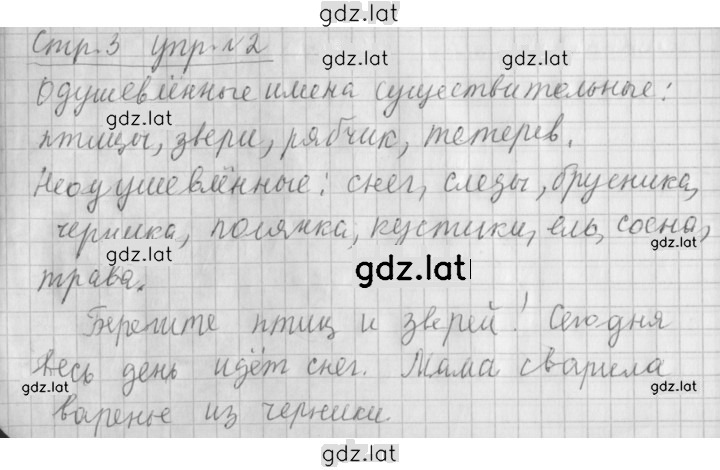 gdz.lat
Стр. 3 упр. №2
gdz.lat
gdz.lat
Одушевлённые имена существительные:
птицы, звери, рябчик, тетерев.
gdz.lat
Неодушевлённые: снег, следы, брусника,
черника, полянка, кустики, ель, сосна,
gdz.lat
gdz.lat
трава.
gdz.lat
Берегите птиц и зверей! Сегодня
весь день идёт снег. Мама сварила
gdz.lat
gdz.lat
варенье из черники
gdz.lat